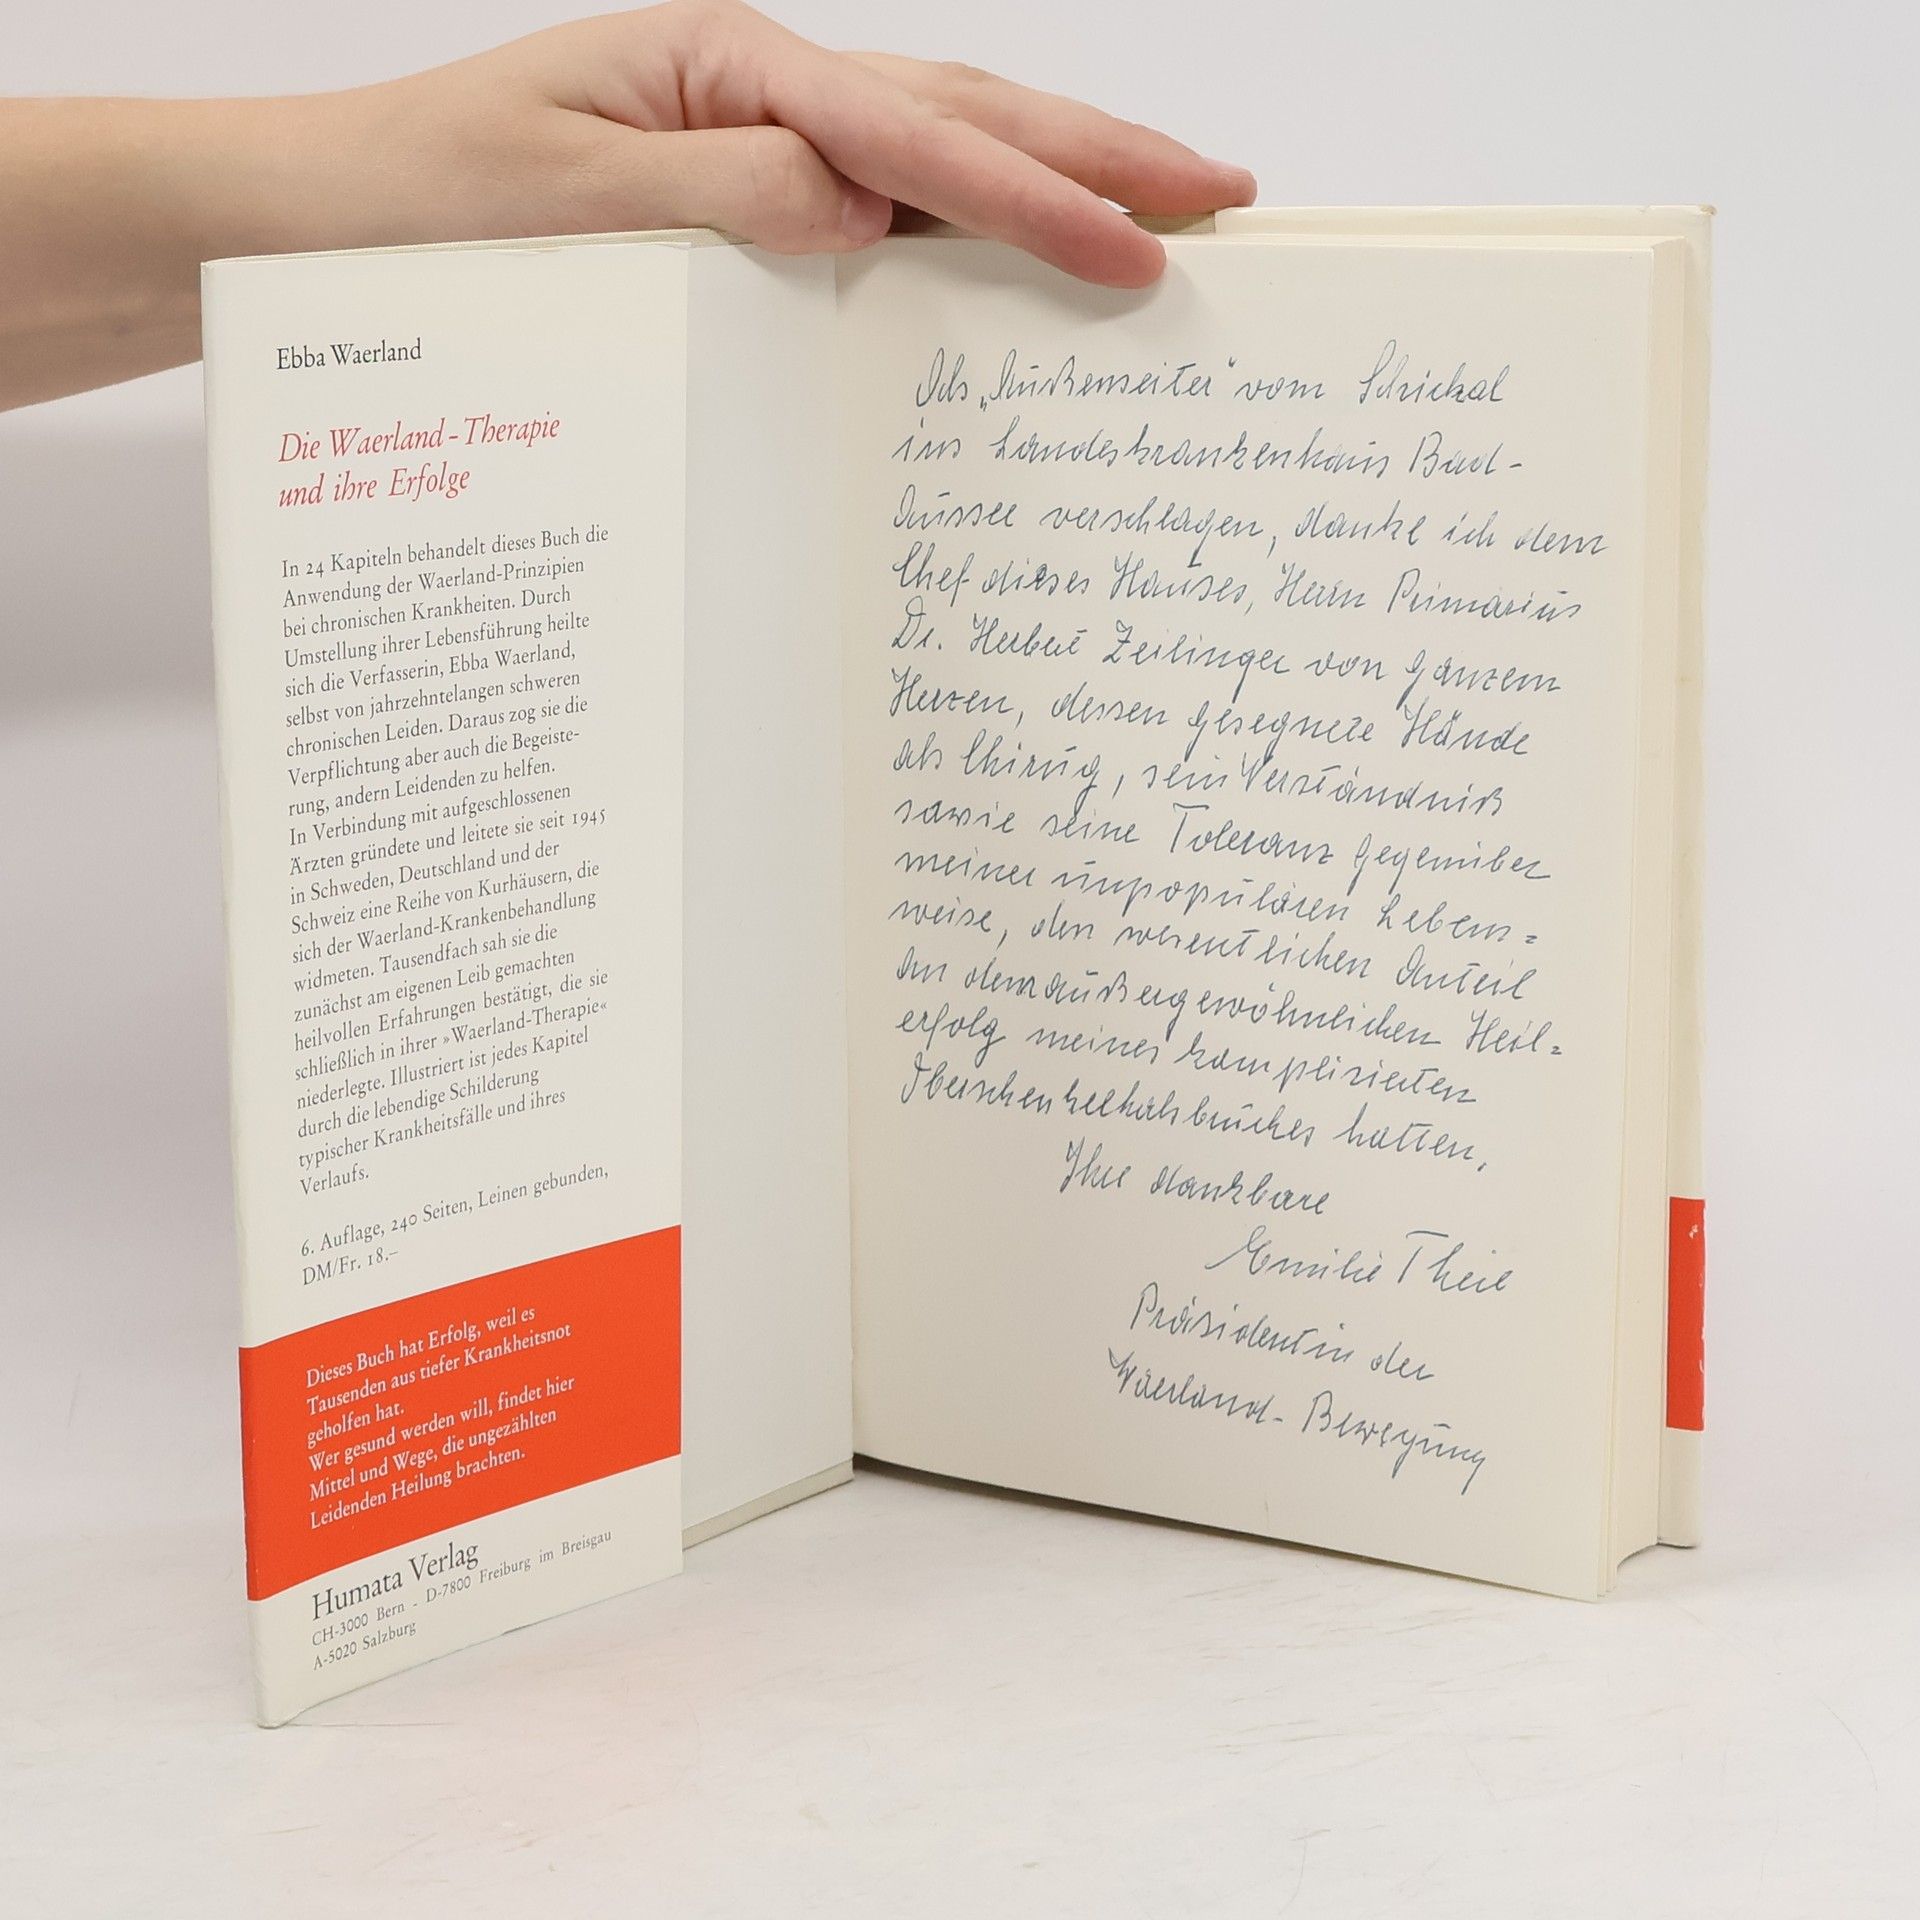 Ebba Waerland
Die Waerland-Therapie
und ihre Erfolge
In 24 Kapiteln behandelt dieses Buch die
Anwendung der Waerland-Prinzipien
bei chronischen Krankheiten. Durch
Umstellung ihrer Lebensführung heilte
sich die Verfasserin, Ebba Waerland,
selbst von jahrzehntelangen schweren
chronischen Leiden. Daraus zog sie die
Verpflichtung aber auch die Begeiste-
rung, andern Leidenden zu helfen.
In Verbindung mit aufgeschlossenen
Ärzten gründete und leitete sie seit 1945
in Schweden, Deutschland und der
Schweiz eine Reihe von Kurhäusern, die
sich der Waerland-Krankenbehandlung
widmeten. Tausendfach sah sie die
zunächst am eigenen Leib gemachten
heilvollen Erfahrungen bestätigt, die sie
schließlich in ihrer »Waerland-Therapie«
niederlegte. Illustriert ist jedes Kapitel
durch die lebendige Schilderung
typischer Krankheitsfälle und ihres
Verlaufs.
6. Auflage, 240 Seiten, Leinen gebunden,
DM/Fr. 18.–
Dieses Buch hat Erfolg, weil es
Tausenden aus tiefer Krankheitsnot
geholfen hat.
Wer gesund werden will, findet hier
Mittel und Wege, die ungezählten
Leidenden Heilung brachten.
Humata Verlag
CH-3000 Bern - D-7800 Freiburg im Breisgau
A-5020 Salzburg
Als „Außenseiter" vom Schicksal
ins Landeskrankenhaus Bad-
Aussee verschlagen, danke ich dem
Chef dieses Hauses, Herrn Primarius
Dr. Herbert Zeilinger von ganzem
Herzen, dessen gesegnete Hände
als Chirug, sein Verständniß
sowie seine Toleranz gegenüber
meiner unpopulären Lebens=
weise, den wesentlichen Anteil
an dem außergewöhnlichen Heil=
erfolg meines komplizierten
Oberschenkelhalsbruches hatten.
Ihre dankbare
Emilie Theil
Präsidentin der
Waerland-Bewegung